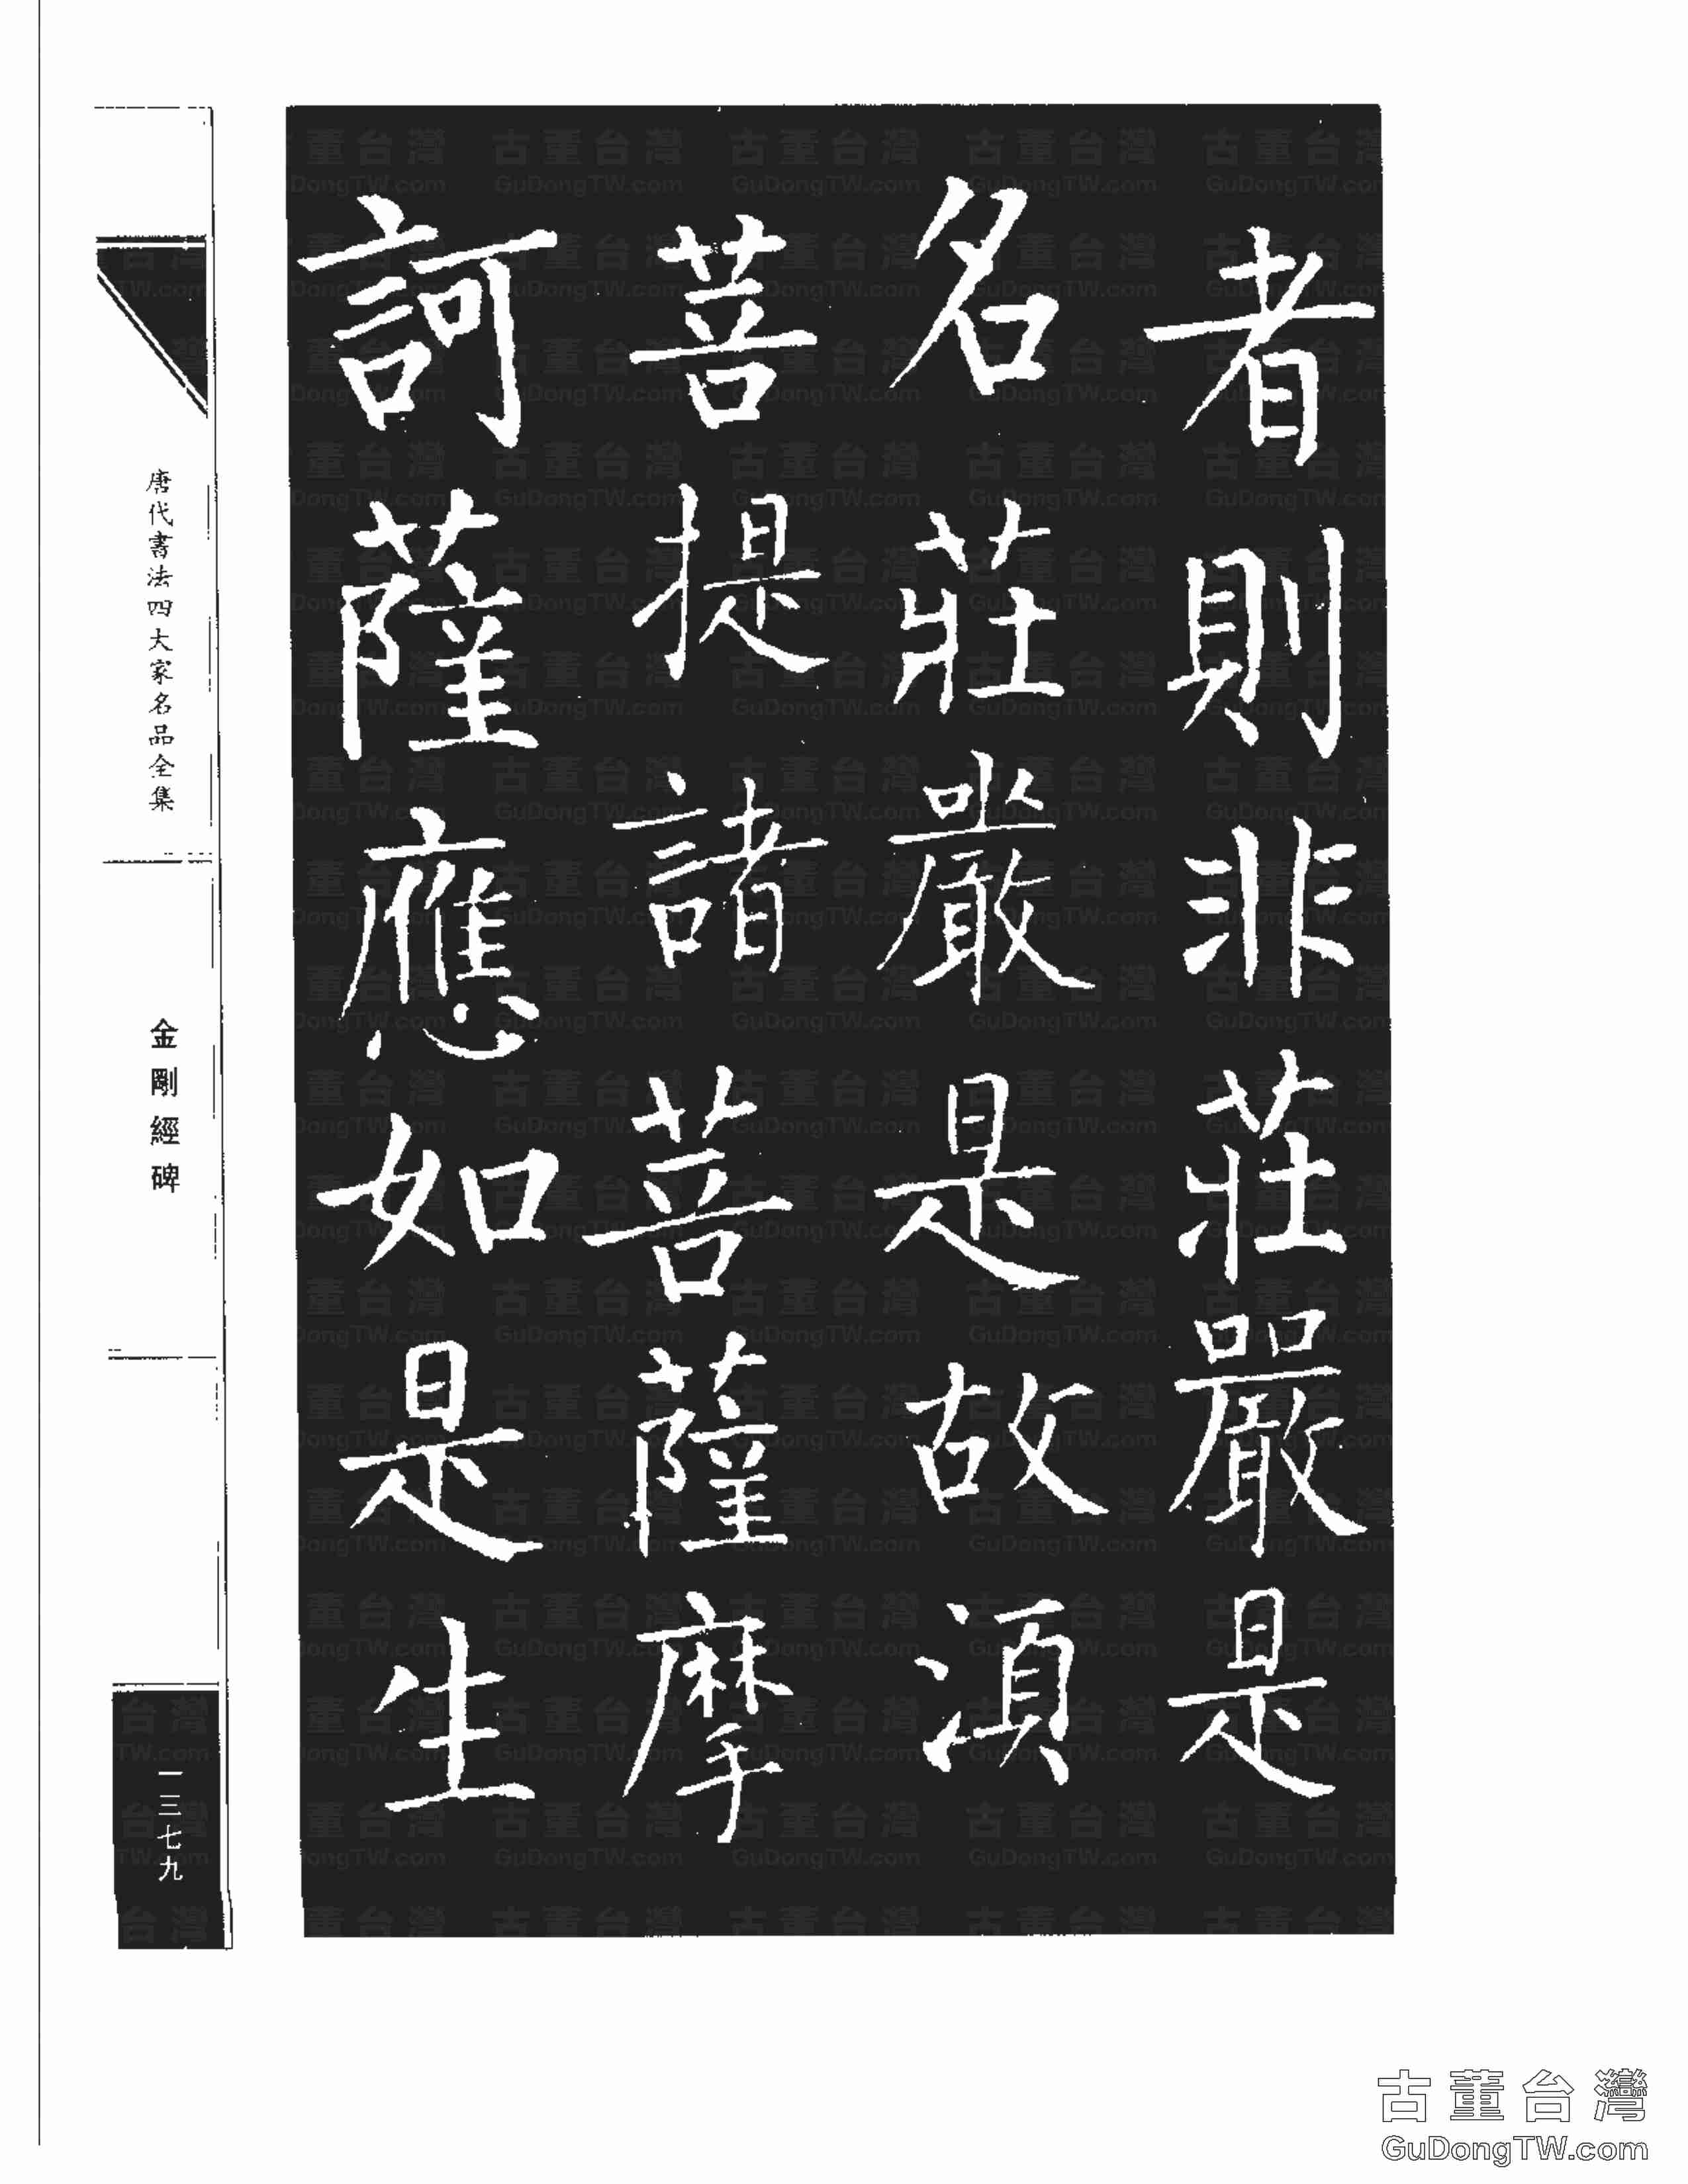 者則非莊嚴是
名莊嚴是故湏
菩提諸菩薩摩
訶薩應如是生
唐代書法四大家名品全集
金剛經碑
一三七九
古董台灣
GuDongTW.com